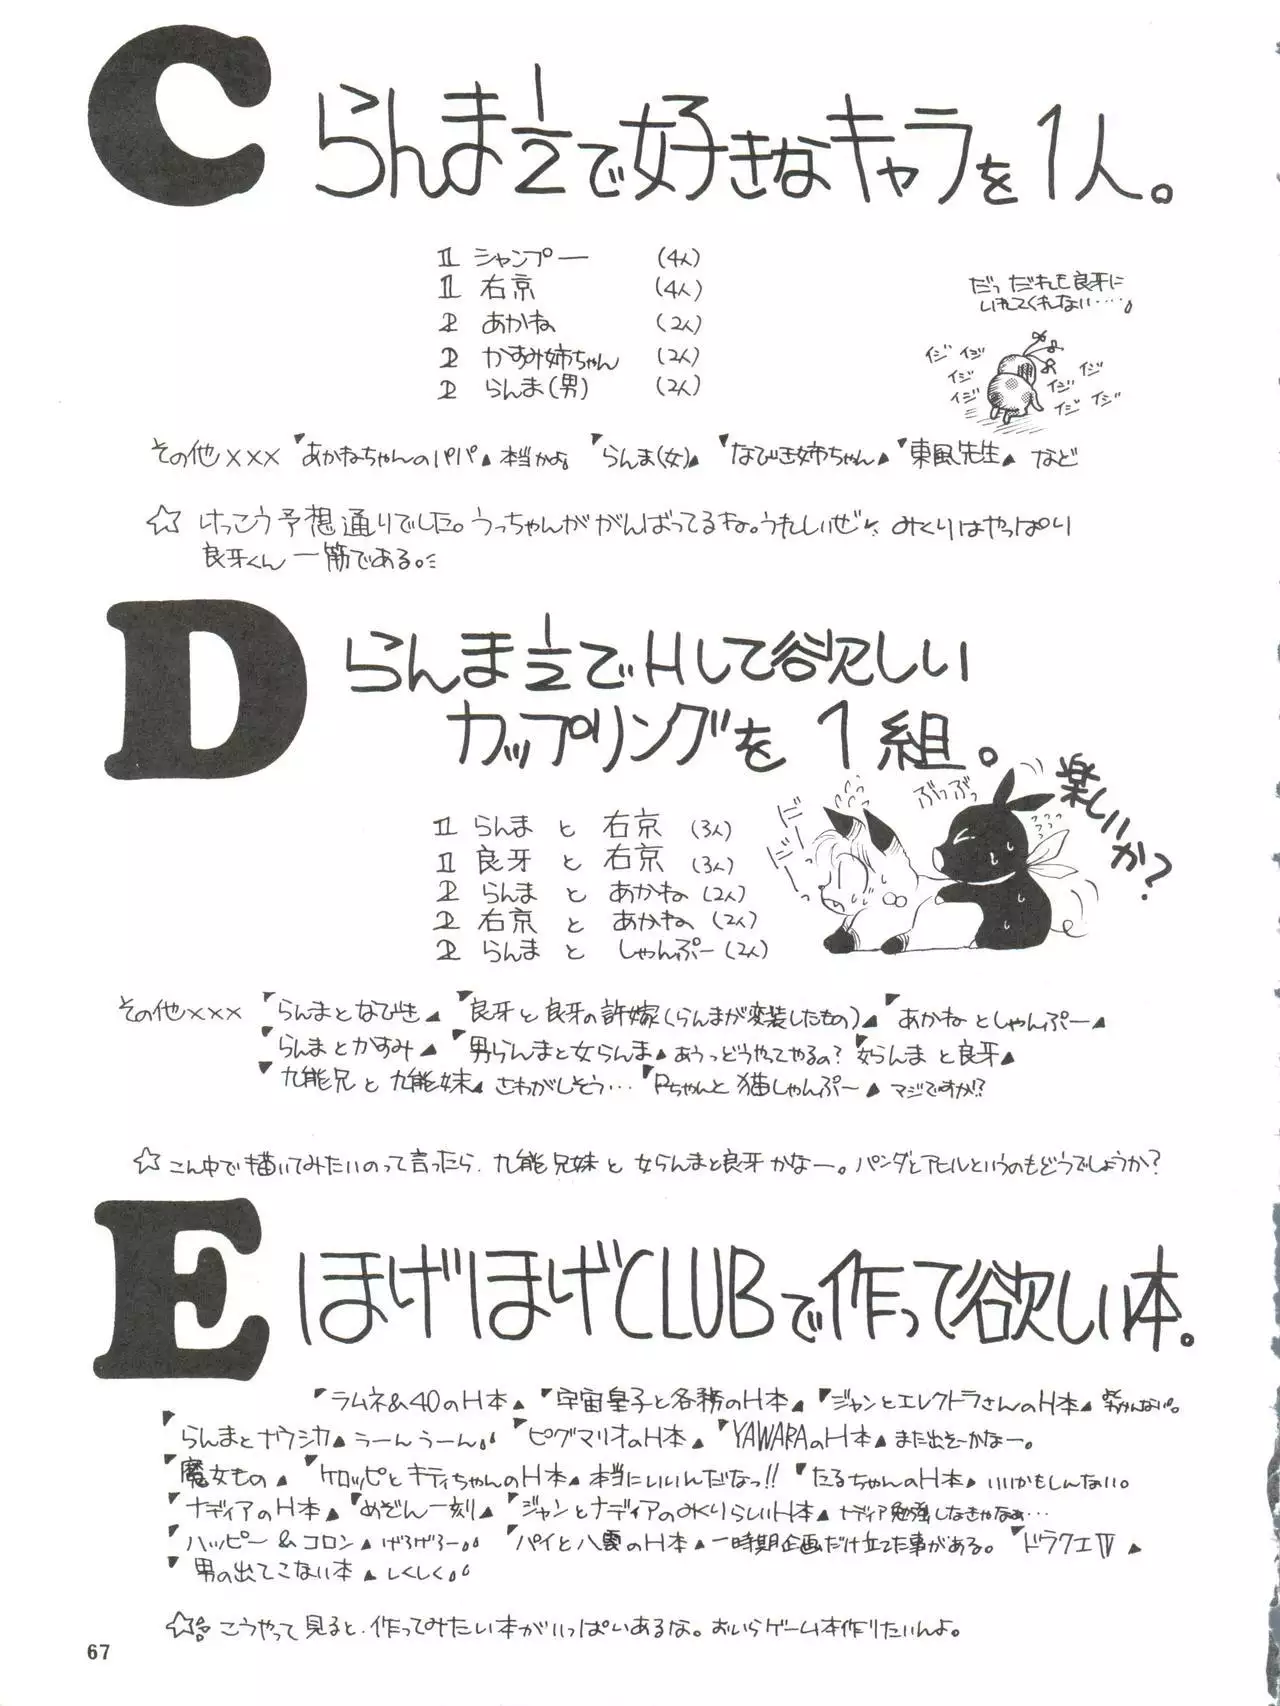 C
らんま1/2で好きなキャラを1人。
1 シャンプー (4人)
1 右京 (4人)
2 あかね (2人)
2 かすみ姉ちゃん (2人)
2 らんま(男) (2人)
だっ だれも良牙に
いれてくれない・・・・。
イジ イジ イジ イジ イジ イジ イジ イジ
その他××× 「あかねちゃんのパパ」本当かよ 「らんま(女)」 「なびき姉ちゃん」 「東風先生」 など
☆ けっこう予想通りでした。うっちゃんががんばってるね。うれしいぜ みくりはやっぱり
良牙くん一筋である。
D
らんま1/2でHして欲しい
カップリングを1組。
楽しいか?
ぶっぶっ
ビーッ ビーッ
1 らんま と 右京 (3人)
1 良牙 と 右京 (3人)
2 らんま と あかね (2人)
2 右京 と あかね (2人)
2 らんま と しゃんぷー (2人)
その他××× 「らんまとなびき」 「良牙と良牙の許嫁(らんまが変装したもの)」 「あかねとしゃんぷー」
「らんまとかすみ」 「男らんまと女らんま」あうっどうやってやるの? 「女らんまと良牙」
「九能兄と九能妹」さわがしそう・・・ 「Pちゃんと猫しゃんぷー」マジですか!?
☆ こん中で描いてみたいのって言ったら、九能兄妹と女らんまと良牙かなー。パンダとアヒルというのもどうでしょうか?
E
ほげほげCLUBで作って欲しい本。
「ラムネ&40のH本」 「宇宙皇子と各務のH本」 「ジャンとエレクトラさんのH本」
「らんまとナウシカ」うーんうーん。 「ピグマリオのH本」 「YAWARAのH本」また出そーかなー。
「魔女もの」 「ケロッピとキティちゃんのH本」本当にいいんだなっ!! 「たるちゃんのH本」いいかもしんない。
「ナディアのH本」 「めぞん一刻」 「ジャンとナディアのみくりらしいH本」ナディア勉強しなきゃなぁ・・・
「ハッピー&コロン」げろげろー。 「パイと八雲のH本」一時期企画だけ立てた事がある。 「ドラクエⅣ」
「男の出てこない本」しくしく。
☆ こうやって見ると、作ってみたい本がいっぱいあるな。おいらゲーム本作りたいんよ。
67